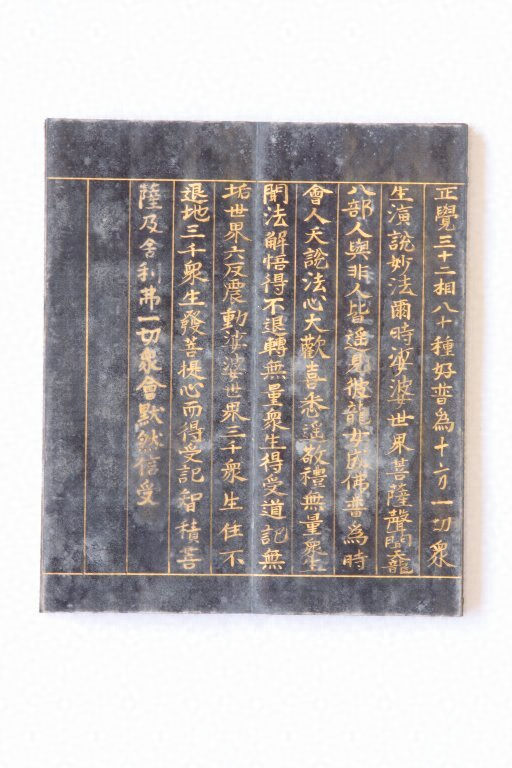 正覺三十二相八十種好普為十方一切衆
生演說妙法爾時娑婆世界菩薩聲聞天龍
八部人與非人皆遥見彼龍女成佛普為時
會人天說法心大歡喜悉遥敬禮無量衆生
聞法解悟得不退轉無量衆生得受道記無
垢世界六反震動娑婆世界三千衆生住不
退地三千衆生發菩提心而得受記智積菩
薩及舍利弗一切衆會默然信受